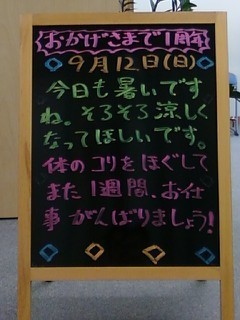 おかげさまで1周年
9月12日(日)
今日も暑いです
ね。そろそろ涼しく
なってほしいです。
体のコリをほぐして
また1週間、お仕
事がんばりましょう!